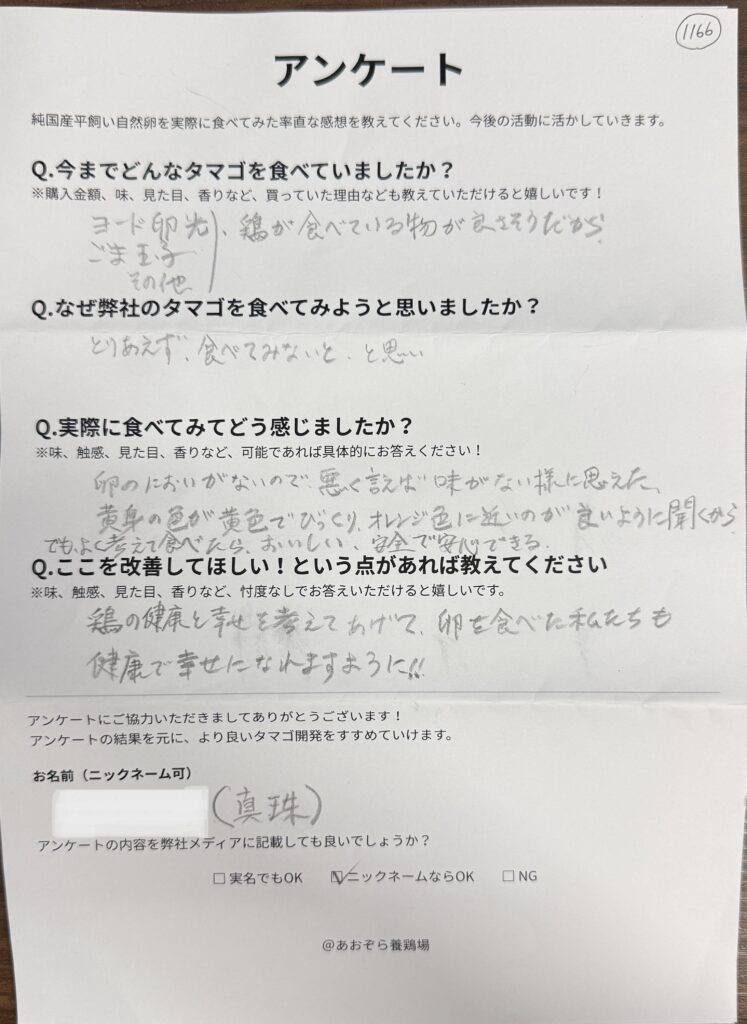 1166
アンケート
純国産平飼い自然卵を実際に食べてみた率直な感想を教えてください。今後の活動に活かしていきます。
Q.今までどんなタマゴを食べていましたか？
※購入金額、味、見た目、香りなど、買っていた理由なども教えていただけると嬉しいです！
ヨード卵光)、鶏が食べている物が良さそうだから
ごま玉子
その他
Q.なぜ弊社のタマゴを食べてみようと思いましたか？
とりあえず、食べてみないと、と思い
Q.実際に食べてみてどう感じましたか？
※味、触感、見た目、香りなど、可能であれば具体的にお答えください！
卵のにおいがないので、悪く言えば味がない様に思えた、
黄身の色が黄色でびっくり、オレンジ色に近いのが良いように聞くから
でもよく考えて食べたら、おいしい、安全で安心できる.
Q.ここを改善してほしい！という点があれば教えてください
※味、触感、見た目、香りなど、忖度なしでお答えいただけると嬉しいです。
鶏の健康と幸せを考えてあげて、卵を食べた私たちも
健康で幸せになれますように!!
アンケートにご協力いただきましてありがとうございます！
アンケートの結果を元に、より良いタマゴ開発をすすめていけます。
お名前（ニックネーム可）
(真珠)
アンケートの内容を弊社メディアに記載しても良いでしょうか？
□ 実名でもOK ☑ニックネームならOK □ NG
@あおぞら養鶏場